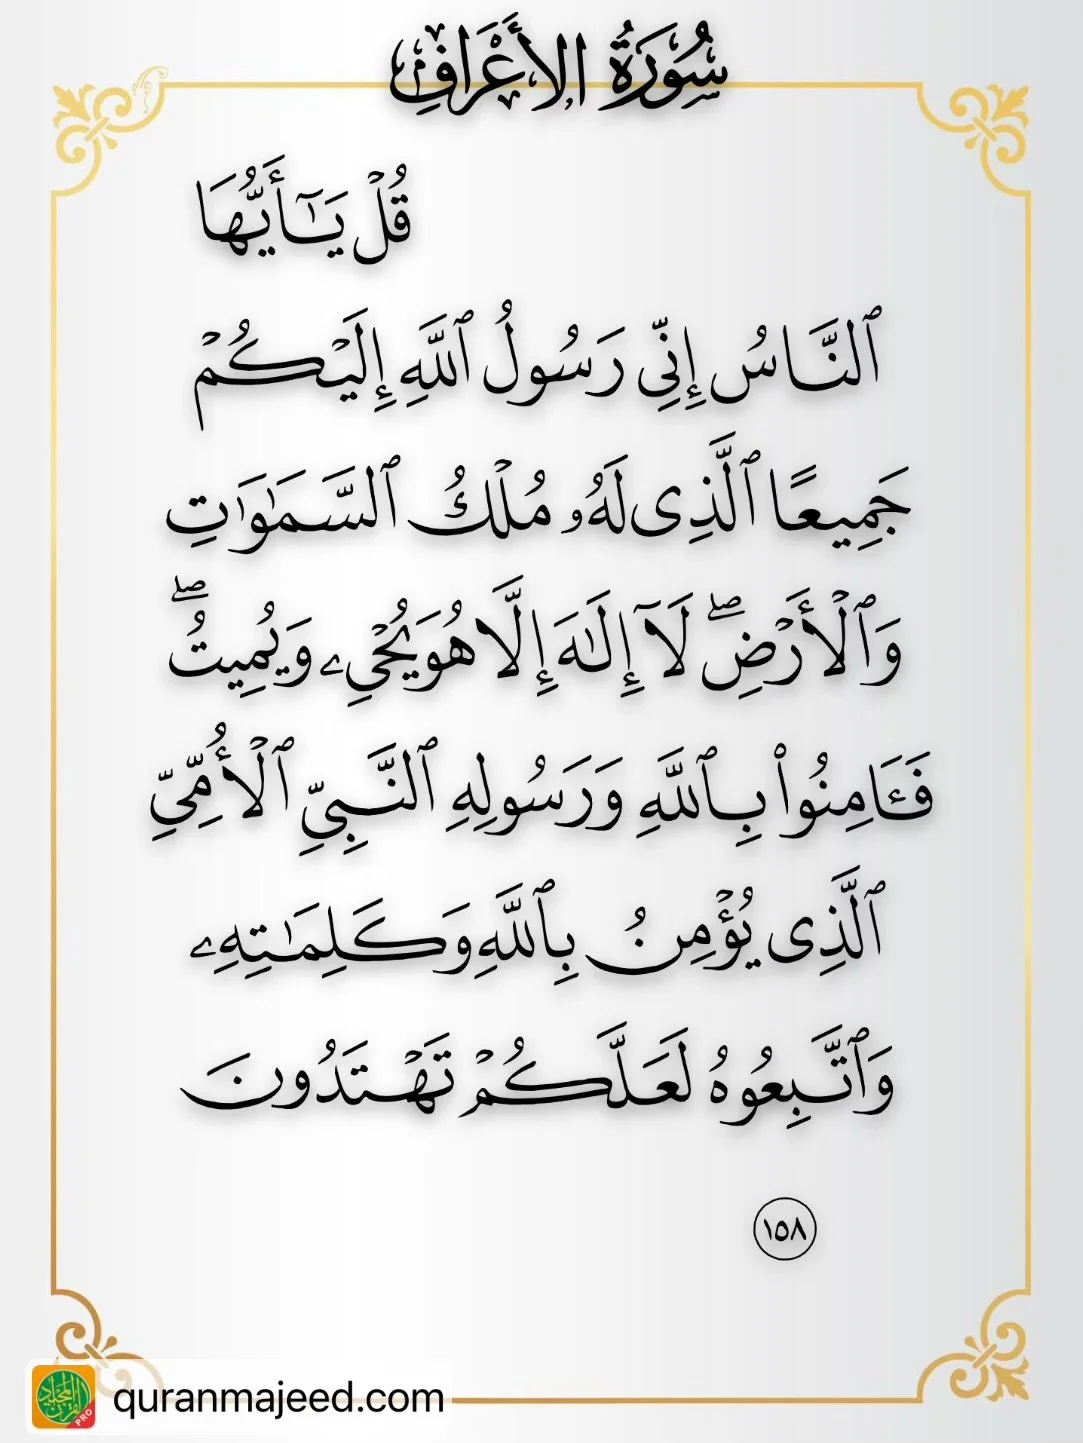 سُورَةُ الأَعْرَافِ
قُلْ يَـٰٓأَيُّهَا
ٱلنَّاسُ إِنِّى رَسُولُ ٱللَّهِ إِلَيْكُمْ
جَمِيعًا ٱلَّذِى لَهُۥ مُلْكُ ٱلسَّمَـٰوَٰتِ
وَٱلْأَرْضِ ۖ لَآ إِلَـٰهَ إِلَّا هُوَ يُحْىِۦ وَيُمِيتُ ۖ
فَـَٔامِنُوا۟ بِٱللَّهِ وَرَسُولِهِ ٱلنَّبِىِّ ٱلْأُمِّىِّ
ٱلَّذِى يُؤْمِنُ بِٱللَّهِ وَكَلِمَـٰتِهِۦ
وَٱتَّبِعُوهُ لَعَلَّكُمْ تَهْتَدُونَ
١٥٨
القرآن المجيد
PRO
quranmajeed.com